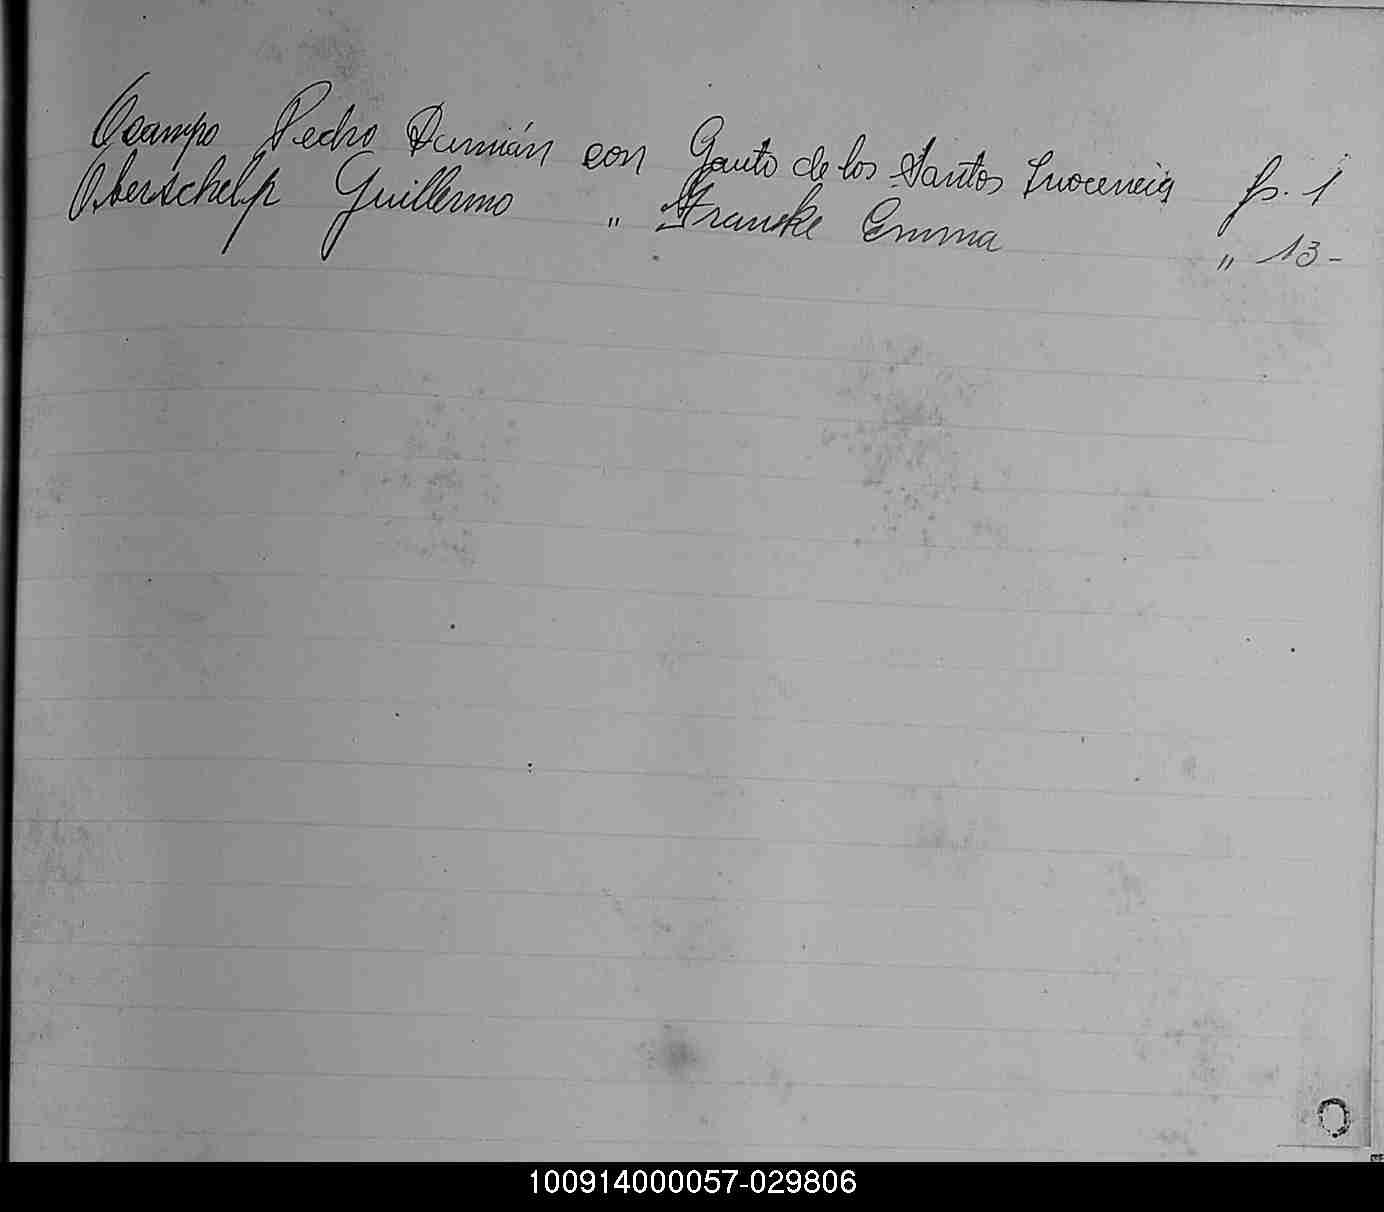 Ocampo Pedro Damián con Gauto de los Santos Inocencia fs. 1
Oberschelp Guillermo " Franske Emma " 13-
O
100914000057-029806